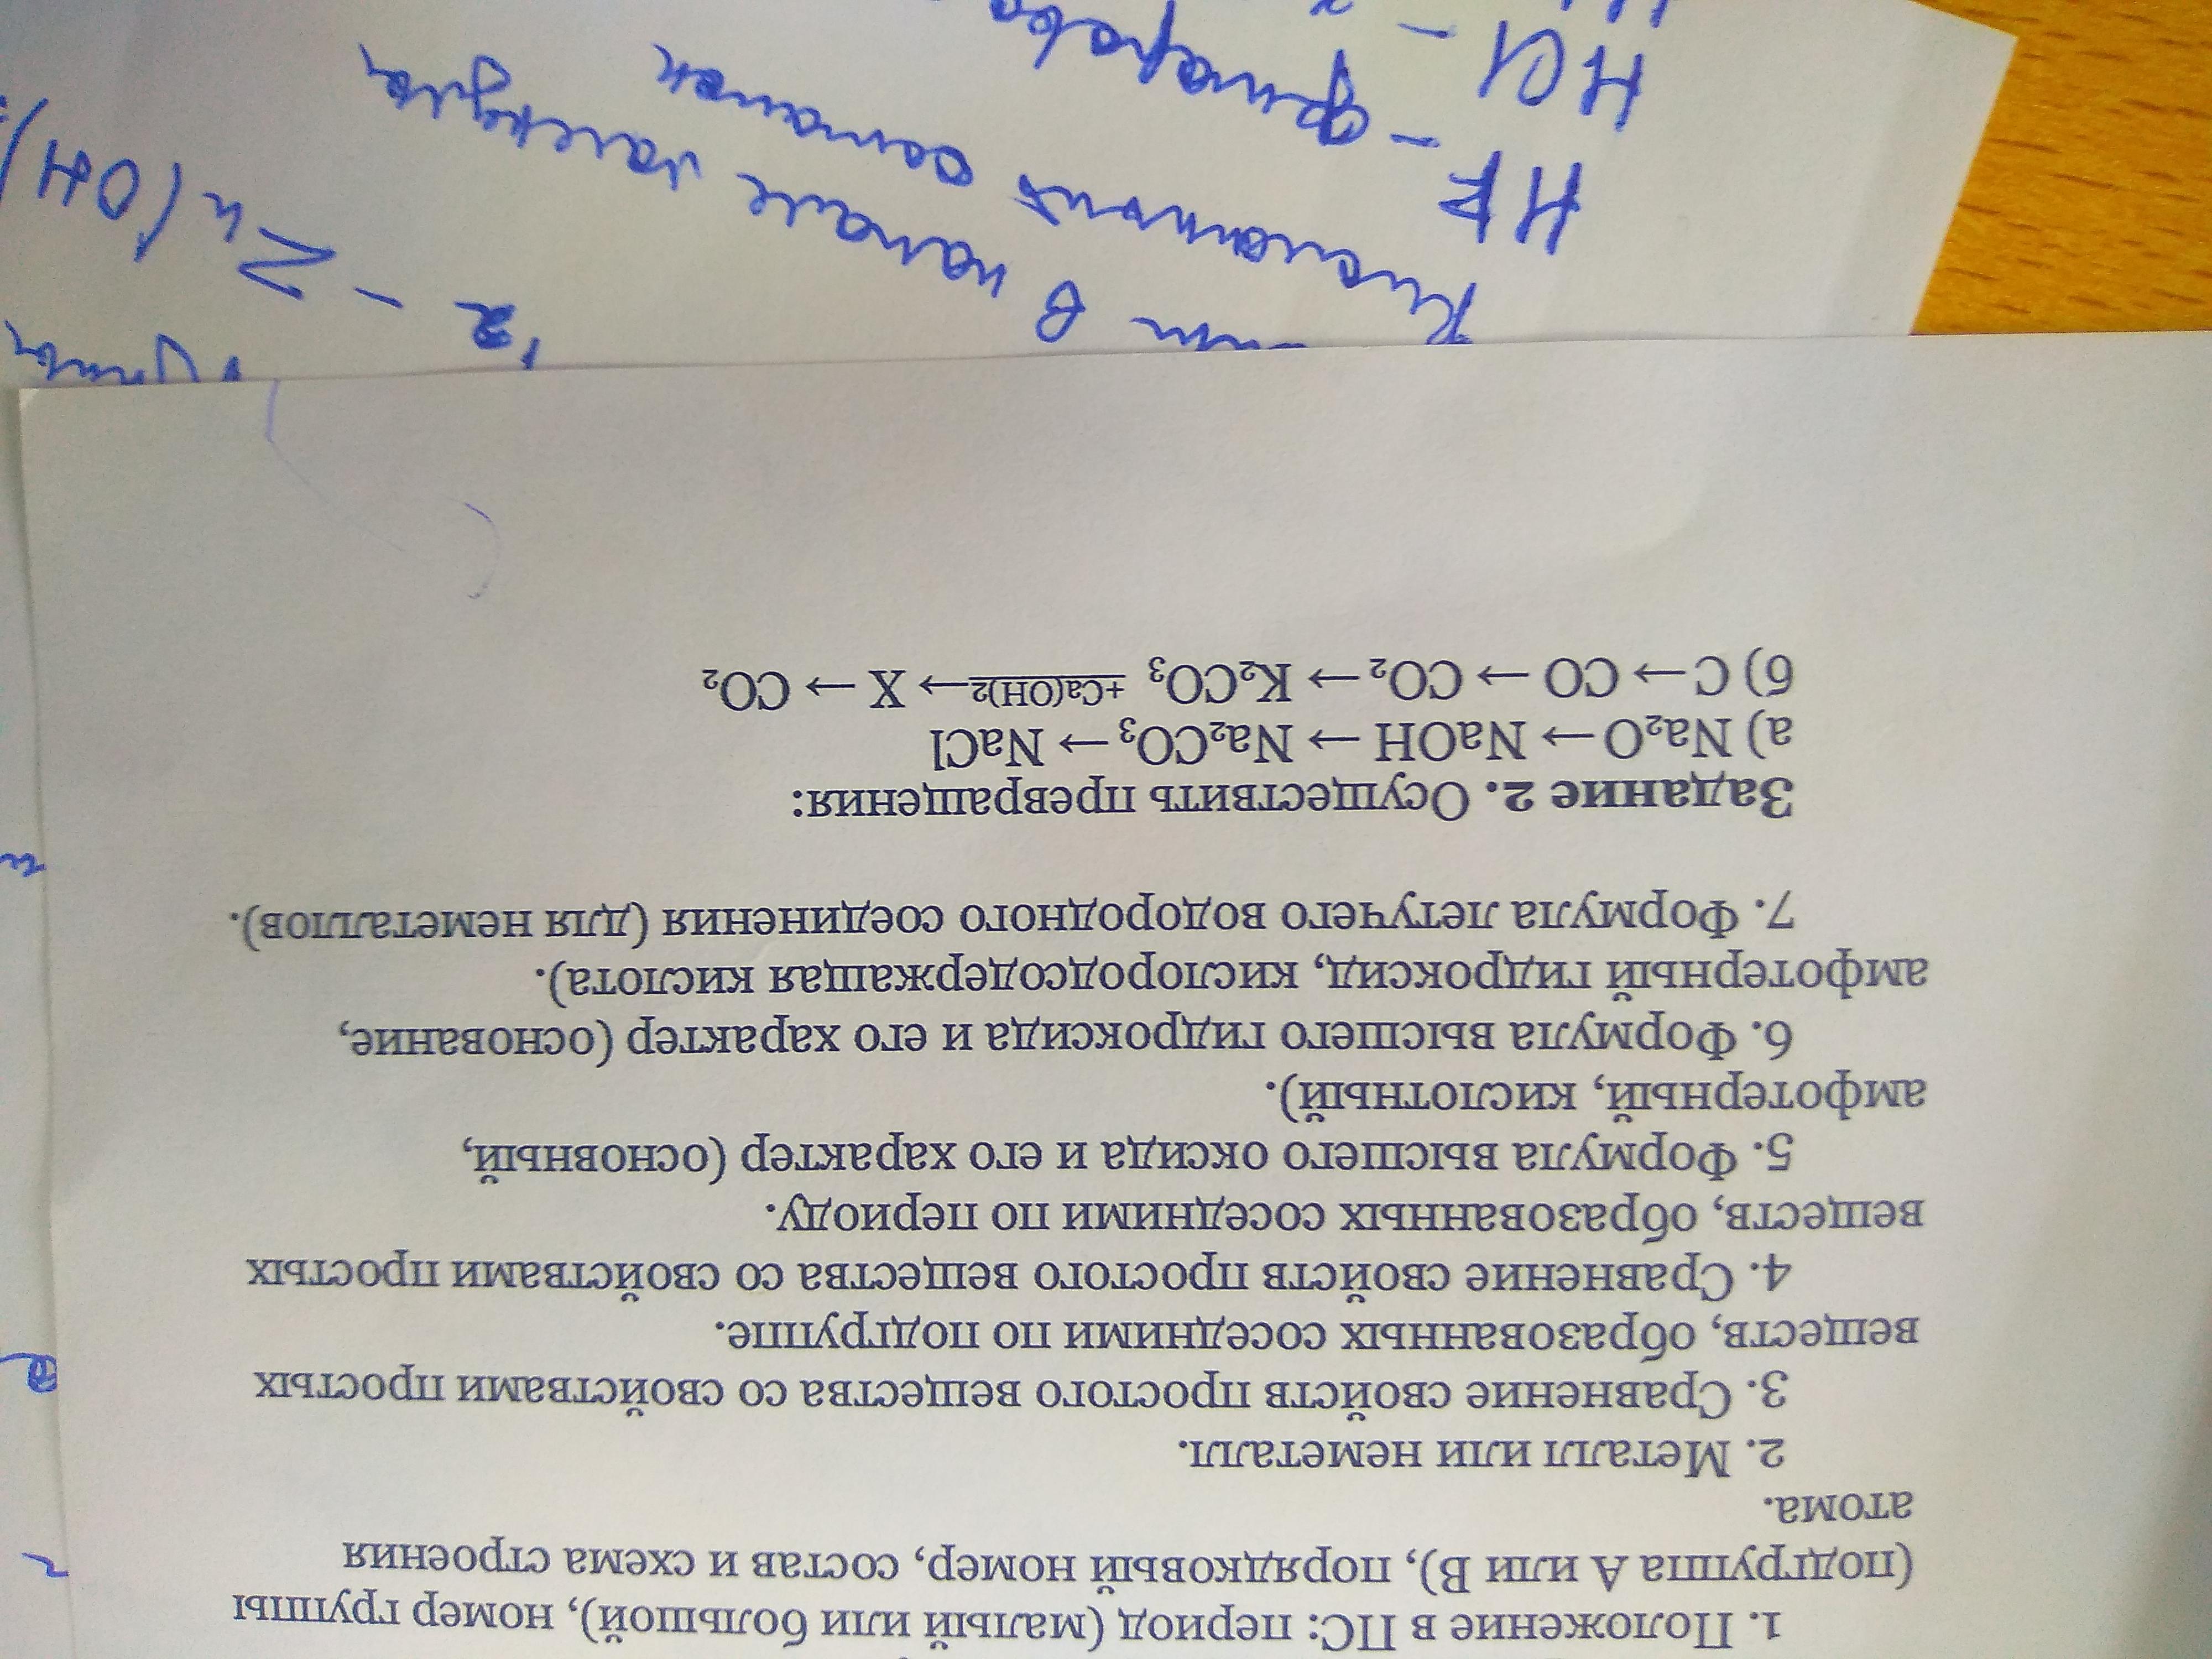 1. Положение в ПС: период (малый или большой), номер группы
(подгруппа А или В), порядковый номер, состав и схема строения
атома.
2. Металл или неметалл.
3. Сравнение свойств простого вещества со свойствами простых
веществ, образованных соседними по подгруппе.
4. Сравнение свойств простого вещества со свойствами простых
веществ, образованных соседними по периоду.
5. Формула высшего оксида и его характер (основный,
амфотерный, кислотный).
6. Формула высшего гидроксида и его характер (основание,
амфотерный гидроксид, кислородсодержащая кислота).
7. Формула летучего водородного соединения (для неметаллов).
Задание 2. Осуществить превращения:
а) Na₂O → NaOH → Na₂CO₃ → NaCl
б) C → CO → CO₂ → K₂CO₃ +Ca(OH)2→ X → CO₂
в начале молекулы
Кислотный остаток
2 – Zn(OH)
HF –
HCl –